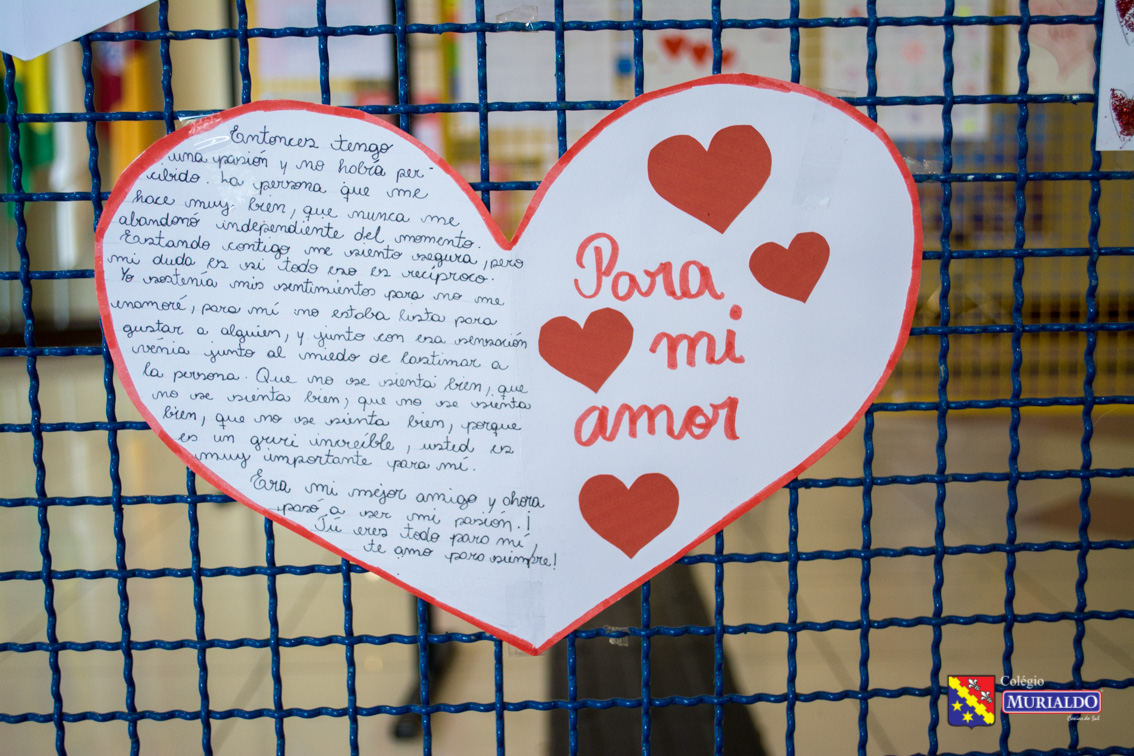 Entonces tengo
una pasión y no había per-
cibido. La persona que me
hace muy bien, que nunca me
abandonó independiente del momento.
Eastando contigo me siento segura, pero
mi duda es si todo eso es recíproco.
Yo sostenía mis sentimientos para no me
enamoré, para mí no estaba lista para
gustar a alguien, y junto con esa sensación
vénia junto al miedo de lastimar a
la persona. Que no se sienta bien, que
no se sienta bien, que no se sienta
bien, que no se sienta bien, porque
es un gruri increíble, usted es
muy importante para mí.
Era mi mejor amigo y ahora
pasó a ser mi pasión.!
Tú eres todo para mí,
te amo para siempre!
Para
mi
amor
Colégio
MURIALDO
Caxias do Sul